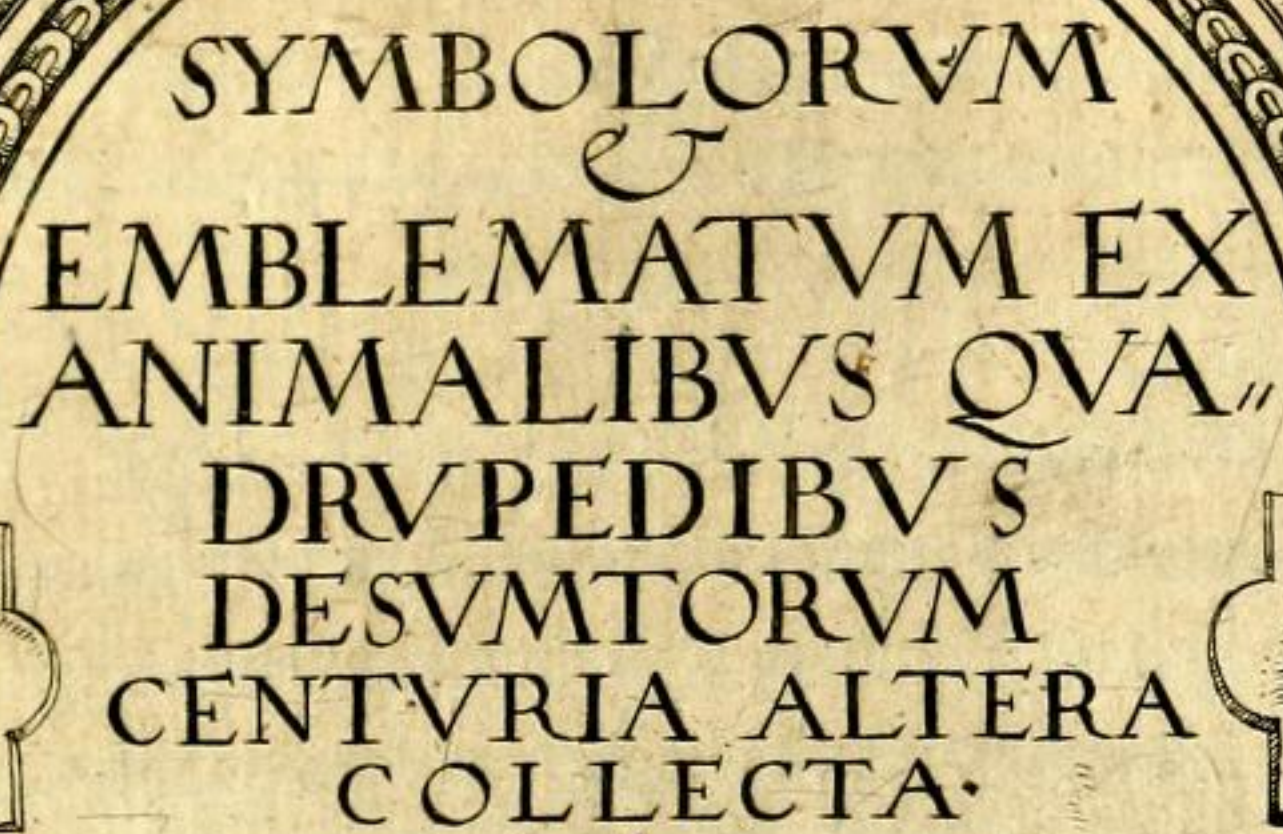 SYMBOLORVM
&
EMBLEMATVM EX
ANIMALIBVS QVA„
DRVPEDIBVS
DESVMTORVM
CENTVRIA ALTERA
COLLECTA·